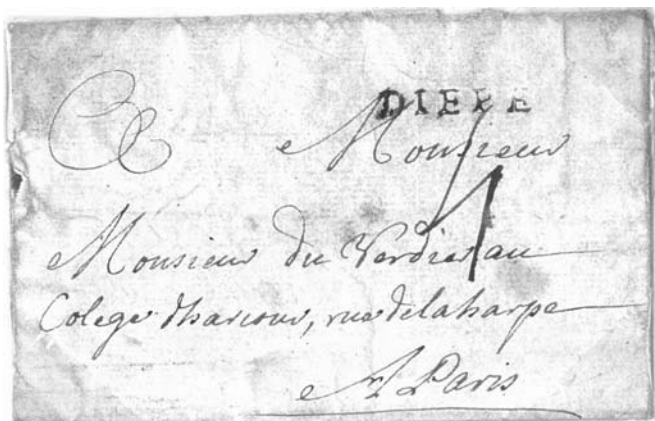 DIEPE
A Monsieur
Monsieur du Verdier au
Colege dharcour, rue de la harpe
A Paris